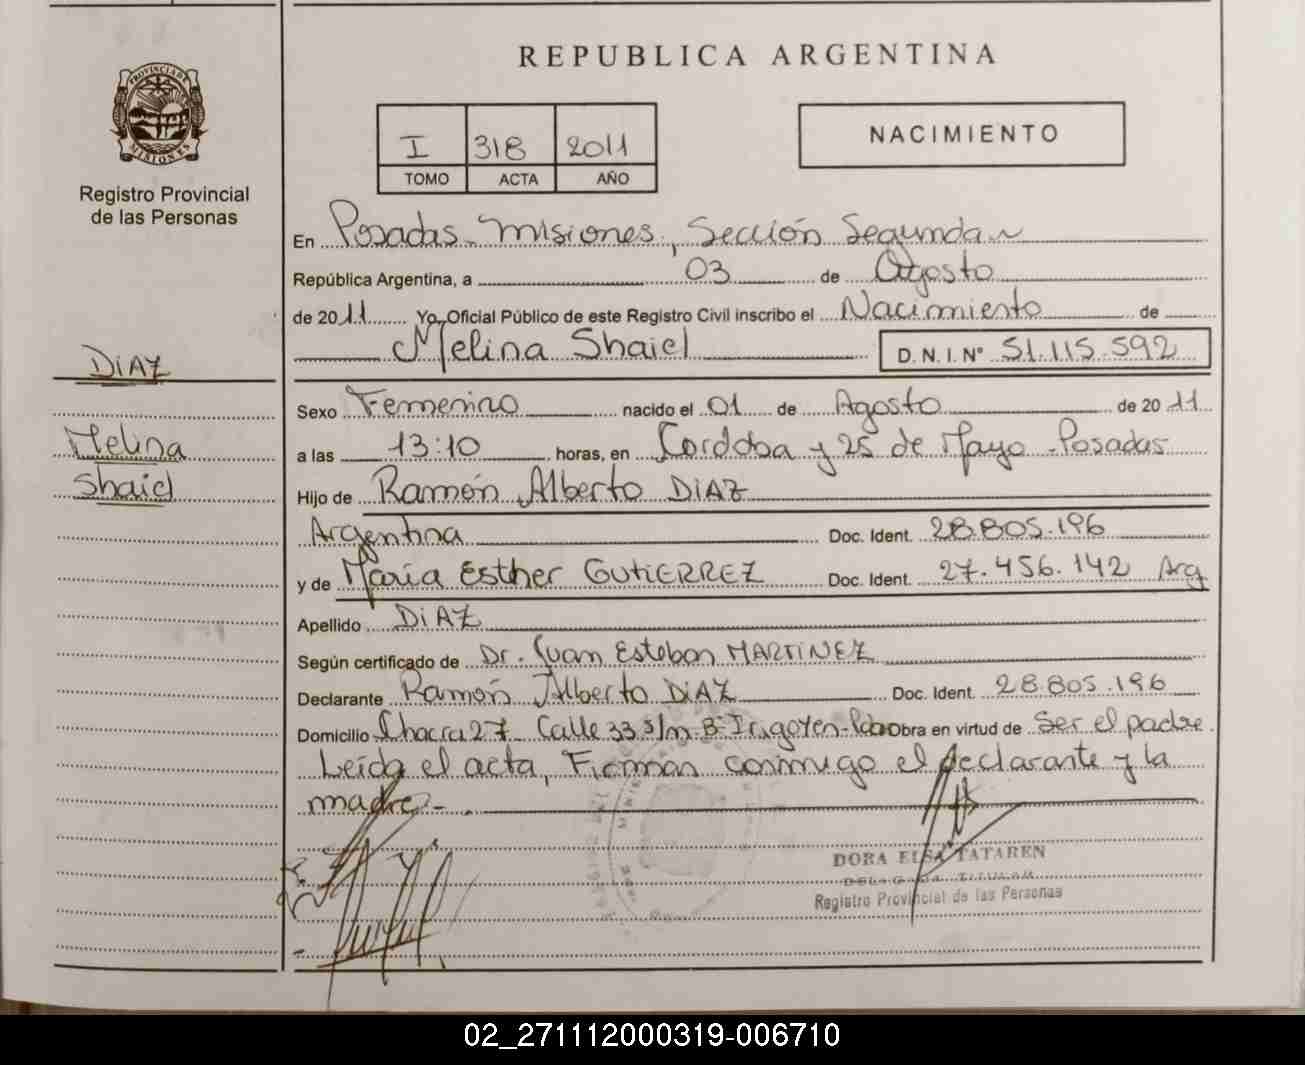 REPUBLICA ARGENTINA
PROVINCIA DE MISIONES
Registro Provincial
de las Personas
I 318 2011
TOMO ACTA AÑO
NACIMIENTO
En Posadas - Misiones, Sección Segunda
República Argentina, a 03 de Agosto
de 2011 Yo, Oficial Público de este Registro Civil inscribo el Nacimiento de
Melina Shaiel D.N.I. Nº 51.115.592
DIAZ
Melina
Shaiel
Sexo Femenino nacido el 01 de Agosto de 2011
a las 13:10 horas, en Cordoba y 25 de Mayo - Posadas
Hijo de Ramón Alberto DIAZ
Argentina Doc. Ident. 28.805.196
y de María Esther GUTIERREZ Doc. Ident. 27.456.142 Arg
Apellido DIAZ
Según certificado de Dr. Juan Esteban MARTINEZ
Declarante Ramón Alberto DIAZ Doc. Ident. 28.805.196
Domicilio Chacra 27 Calle 33 s/n Bº Irigoyen - Obra en virtud de Ser el padre
Leída el acta, Firman conmigo el declarante y la
madre.-
DORA ELSA TATAREN
DELEGADA TITULAR
Registro Provincial de las Personas
02_271112000319-006710